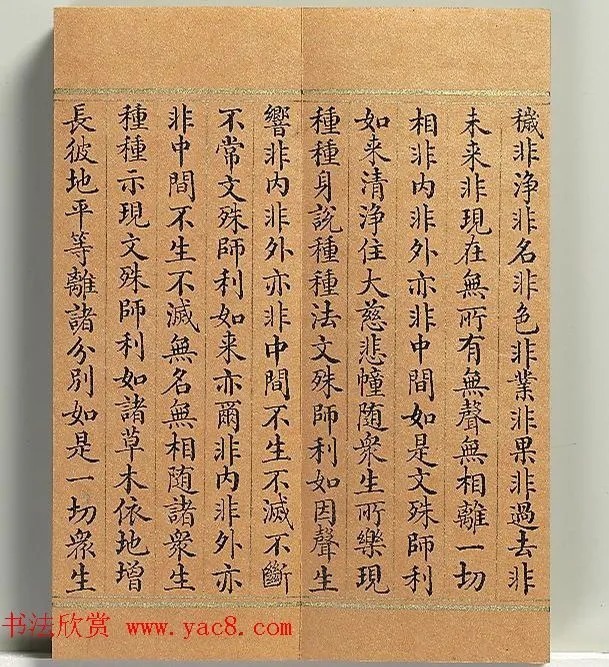 穢非浄非名非色非業非果非過去非
未来非現在無所有無聲無相離一切
相非内非外亦非中間如是文殊師利
如来清浄住大慈悲幢随衆生所樂現
種種身說種種法文殊師利如因聲生
響非内非外亦非中間不生不滅不斷
不常文殊師利如来亦爾非内非外亦
非中間不生不滅無名無相随諸衆生
種種示現文殊師利如諸草木依地增
長彼地平等離諸分別如是一切衆生
书法欣赏 www.yac8.com